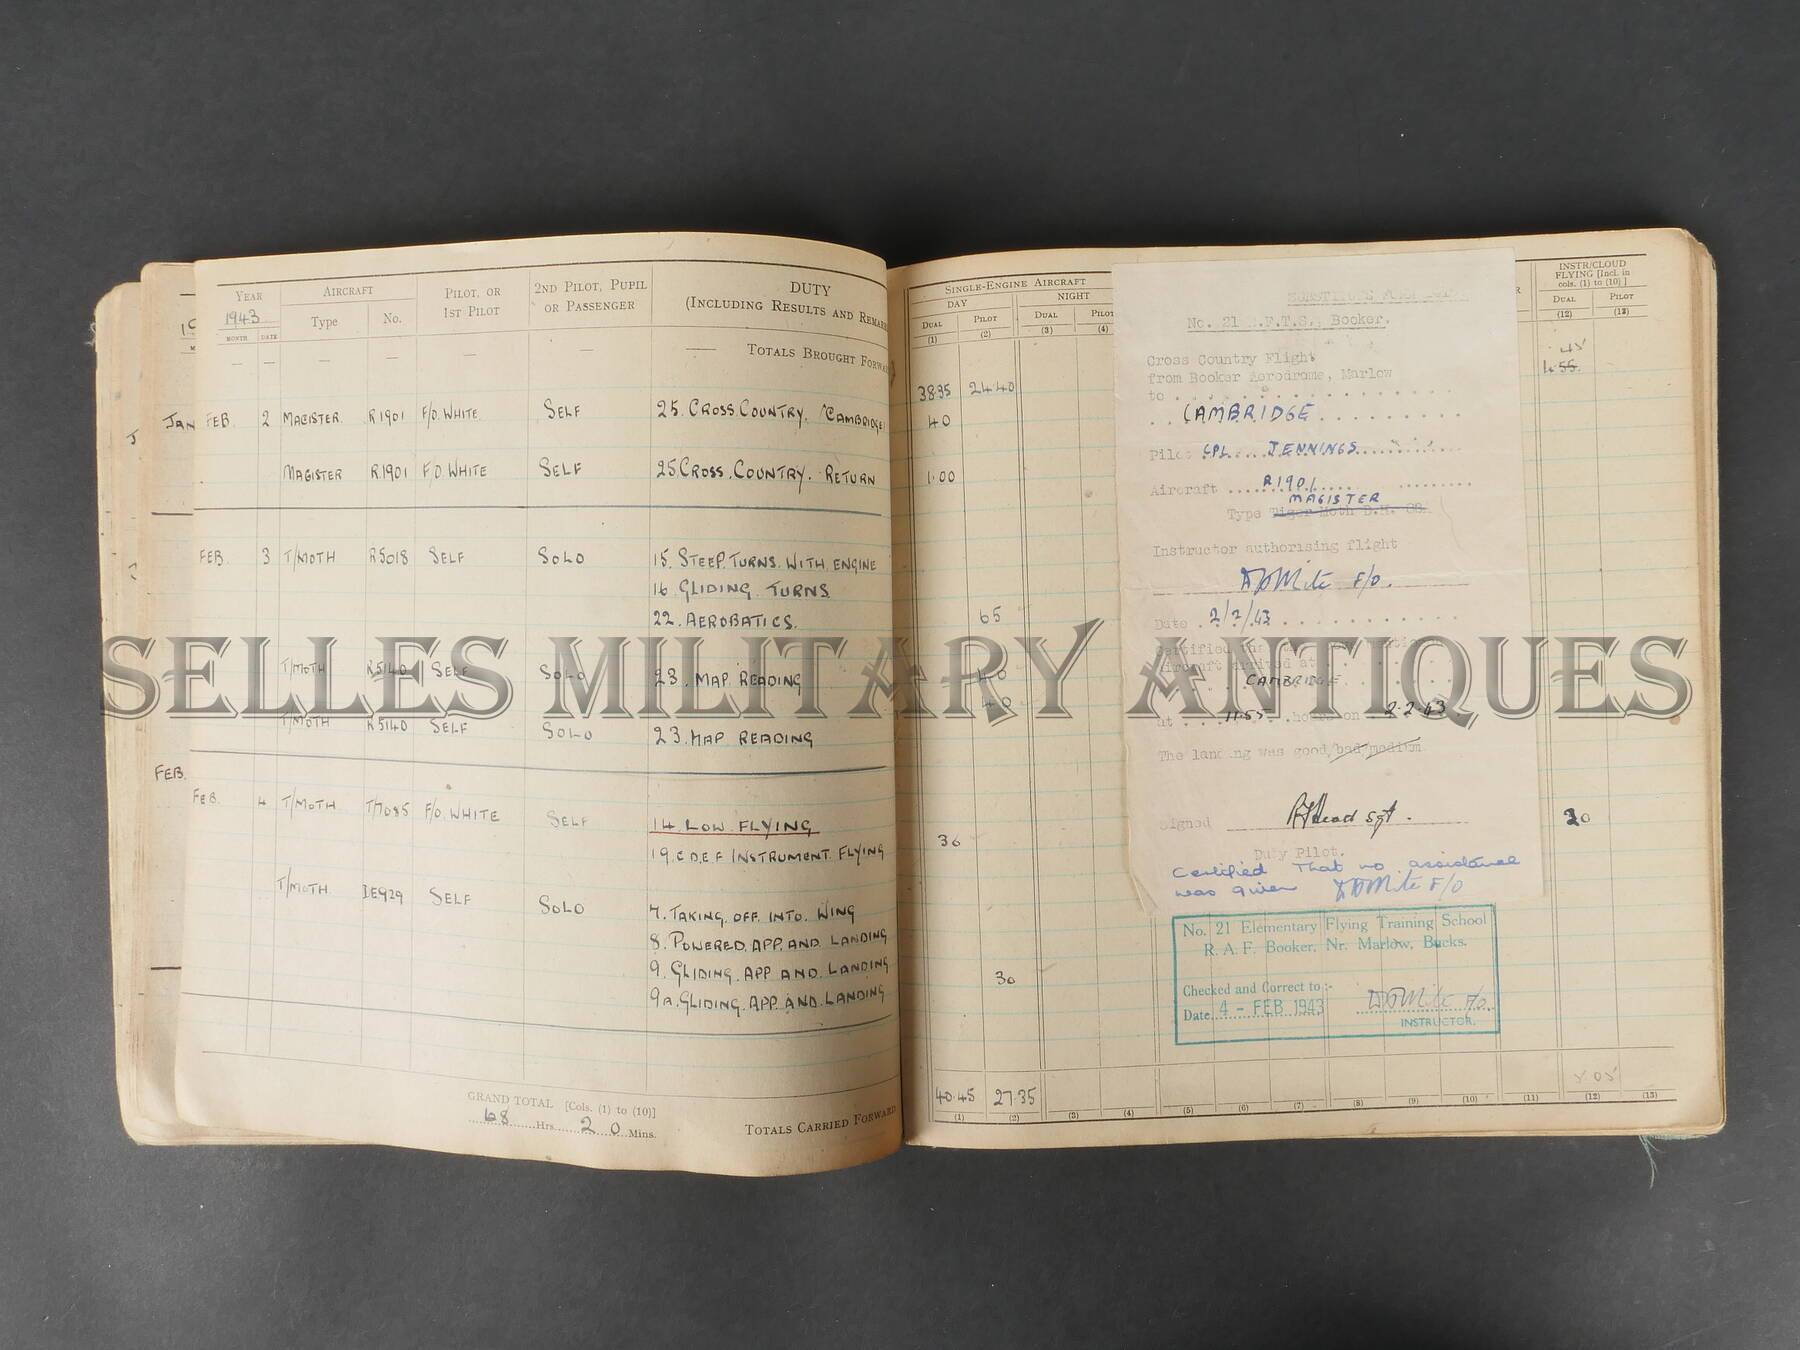 YEAR
AIRCRAFT
PILOT, OR 1ST PILOT
2ND PILOT, PUPIL OR PASSENGER
DUTY
(INCLUDING RESULTS AND REMARK
1943
MONTH DATE Type No.
— — — — — — — TOTALS BROUGHT FORWA
JAN
FEB 2 MAGISTER R1901 F/O. WHITE SELF 25. CROSS. COUNTRY. CAMBRIDGE
MAGISTER R1901 F/O. WHITE SELF 25. CROSS. COUNTRY. RETURN
FEB. 3 T/MOTH R5018 SELF SOLO 15. STEEP. TURNS. WITH. ENGINE
16. GLIDING. TURNS
22. AEROBATICS.
T/MOTH R5140 SELF SOLO 23. MAP READING
T/MOTH R5140 SELF SOLO 23. MAP READING
FEB.
FEB. 4 T/MOTH T7085 F/O. WHITE SELF 14. LOW. FLYING
19. C D.E.F INSTRUMENT. FLYING
T/MOTH DE929 SELF SOLO 7. TAKING. OFF. INTO. WIND
8. POWERED. APP. AND. LANDING
9. GLIDING. APP AND. LANDING
9A. GLIDING. APP. AND. LANDING
GRAND TOTAL [Cols. (1) to (10)]
68 Hrs. 20 Mins.
TOTALS CARRIED FORWARD
SINGLE-ENGINE AIRCRAFT
DAY NIGHT
DUAL PILOT DUAL PILOT
(1) (2) (3) (4)
38.35 24.40
40
1.00
65
40
40
36
30
40.45 27.35
(1) (2) (3) (4) (5) (6) (7) (8) (9) (10) (11) (12) (13)
No. 21 E.F.T.S., Booker.
Cross Country Flight
from Booker Aerodrome, Marlow
to
CAMBRIDGE
Pilot CPL. JENNINGS
Aircraft R1901
MAGISTER
Type Tiger Moth D.H. 82
Instructor authorising flight
F/O.
Date 2/2/43
Certified that
Aircraft arrived at
CAMBRIDGE
at 11.55 hours on 2.2.43
The landing was good/bad/medium
Signed Sgt.
Duty Pilot.
Certified That no assistance
was given F/O
No. 21 Elementary Flying Training School
R.A.F. Booker, Nr. Marlow, Bucks.
Checked and Correct to :-
Date 4 - FEB 1943 F/O.
INSTRUCTOR.
INSTR/CLOUD
FLYING [Incl. in
cols. (1) to (10) ]
DUAL PILOT
(12) (13)
45
4.55
20
5.05
SELLES MILITARY ANTIQUES